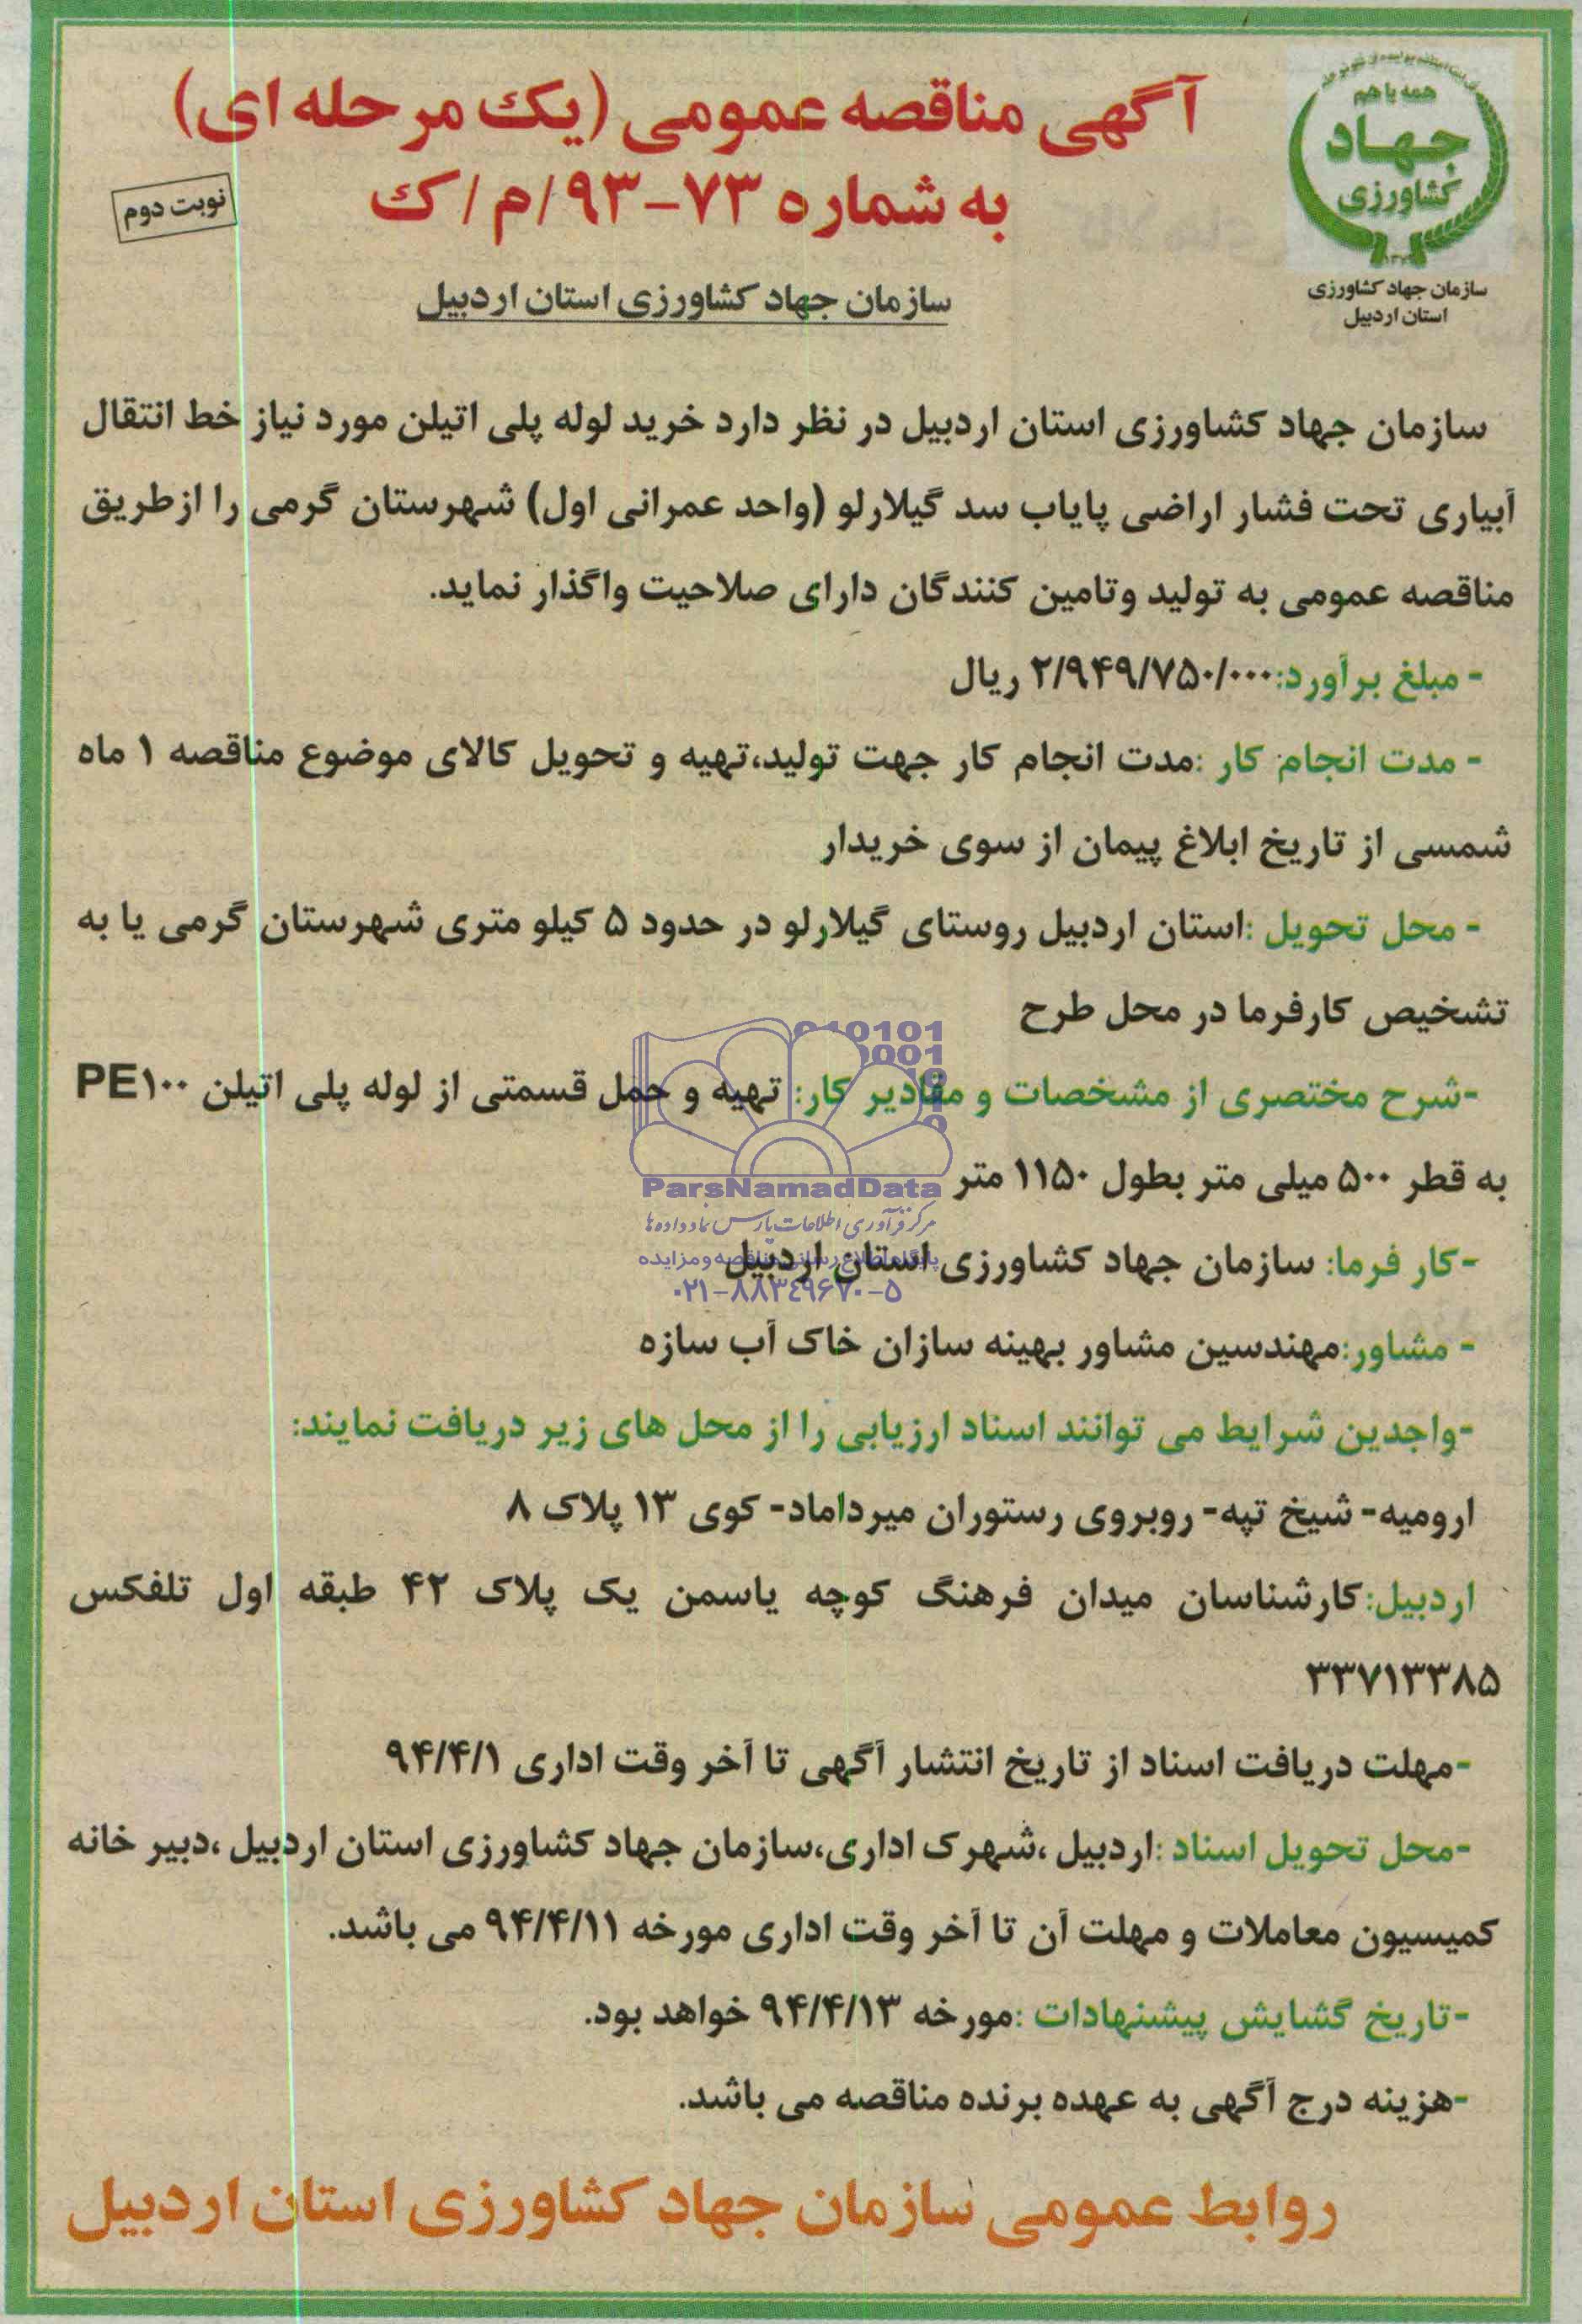 همه با هم
جهاد
کشاورزی
سازمان جهاد کشاورزی
استان اردبیل
آگهی مناقصه عمومی (یک مرحله ای)
به شماره ۷۳-۹۳/م/ک
نوبت دوم
سازمان جهاد کشاورزی استان اردبیل
سازمان جهاد کشاورزی استان اردبیل در نظر دارد خرید لوله پلی اتیلن مورد نیاز خط انتقال
آبیاری تحت فشار اراضی پایاب سد گیلارلو (واحد عمرانی اول) شهرستان گرمی را ازطریق
مناقصه عمومی به تولید وتامین کنندگان دارای صلاحیت واگذار نماید.
- مبلغ برآورد:۲/۹۴۹/۷۵۰/۰۰۰ ریال
- مدت انجام کار :مدت انجام کار جهت تولید،تهیه و تحویل کالای موضوع مناقصه ۱ ماه
شمسی از تاریخ ابلاغ پیمان از سوی خریدار
- محل تحویل :استان اردبیل روستای گیلارلو در حدود ۵ کیلو متری شهرستان گرمی یا به
تشخیص کارفرما در محل طرح
-شرح مختصری از مشخصات و مقادیر کار: تهیه و حمل قسمتی از لوله پلی اتیلن PE۱۰۰
به قطر ۵۰۰ میلی متر بطول ۱۱۵۰ متر
ParsNamadData
مرکز فرآوری اطلاعات پارس نماد داده ها
-کار فرما: سازمان جهاد کشاورزی استان اردبیل
پایگاه اطلاع رسانی مناقصه و مزایده
۰۲۱-۸۸۳۴۹۶۷۰-۵
- مشاور:مهندسین مشاور بهینه سازان خاک آب سازه
-واجدین شرایط می توانند اسناد ارزیابی را از محل های زیر دریافت نمایند:
ارومیه- شیخ تپه- روبروی رستوران میرداماد- کوی ۱۳ پلاک ۸
اردبیل:کارشناسان میدان فرهنگ کوچه یاسمن یک پلاک ۴۲ طبقه اول تلفکس
۳۳۷۱۳۳۸۵
-مهلت دریافت اسناد از تاریخ انتشار آگهی تا آخر وقت اداری ۹۴/۴/۱
-محل تحویل اسناد :اردبیل ،شهرک اداری،سازمان جهاد کشاورزی استان اردبیل ،دبیر خانه
کمیسیون معاملات و مهلت آن تا آخر وقت اداری مورخه ۹۴/۴/۱۱ می باشد.
-تاریخ گشایش پیشنهادات :مورخه ۹۴/۴/۱۳ خواهد بود.
-هزینه درج آگهی به عهده برنده مناقصه می باشد.
روابط عمومی سازمان جهاد کشاورزی استان اردبیل